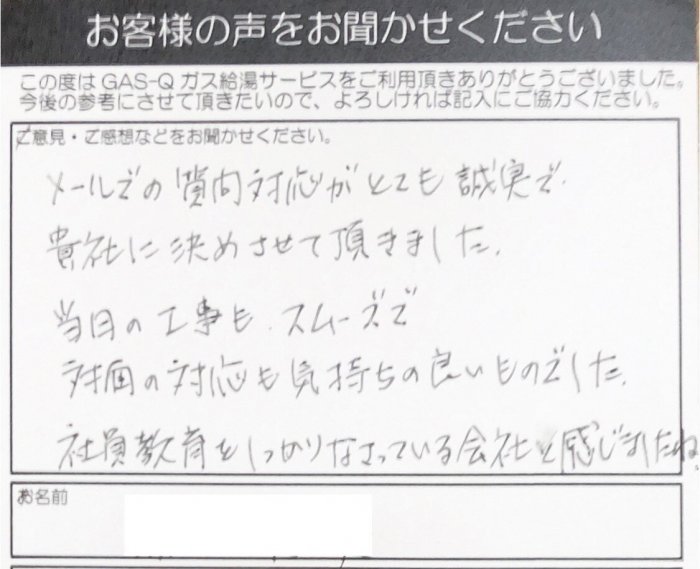 お客様の声をお聞かせください
この度は GAS-Q ガス給湯サービスをご利用頂きありがとうございました。
今後の参考にさせて頂きたいので、よろしければ記入にご協力ください。
ご意見・ご感想などをお聞かせください。
メールでの質問対応がとても誠実で、
貴社に決めさせて頂きました。
当日の工事も、スムーズで
対面の対応も気持ちの良いものでした。
社員教育をしっかりなさっている会社と感じましたね。
お名前